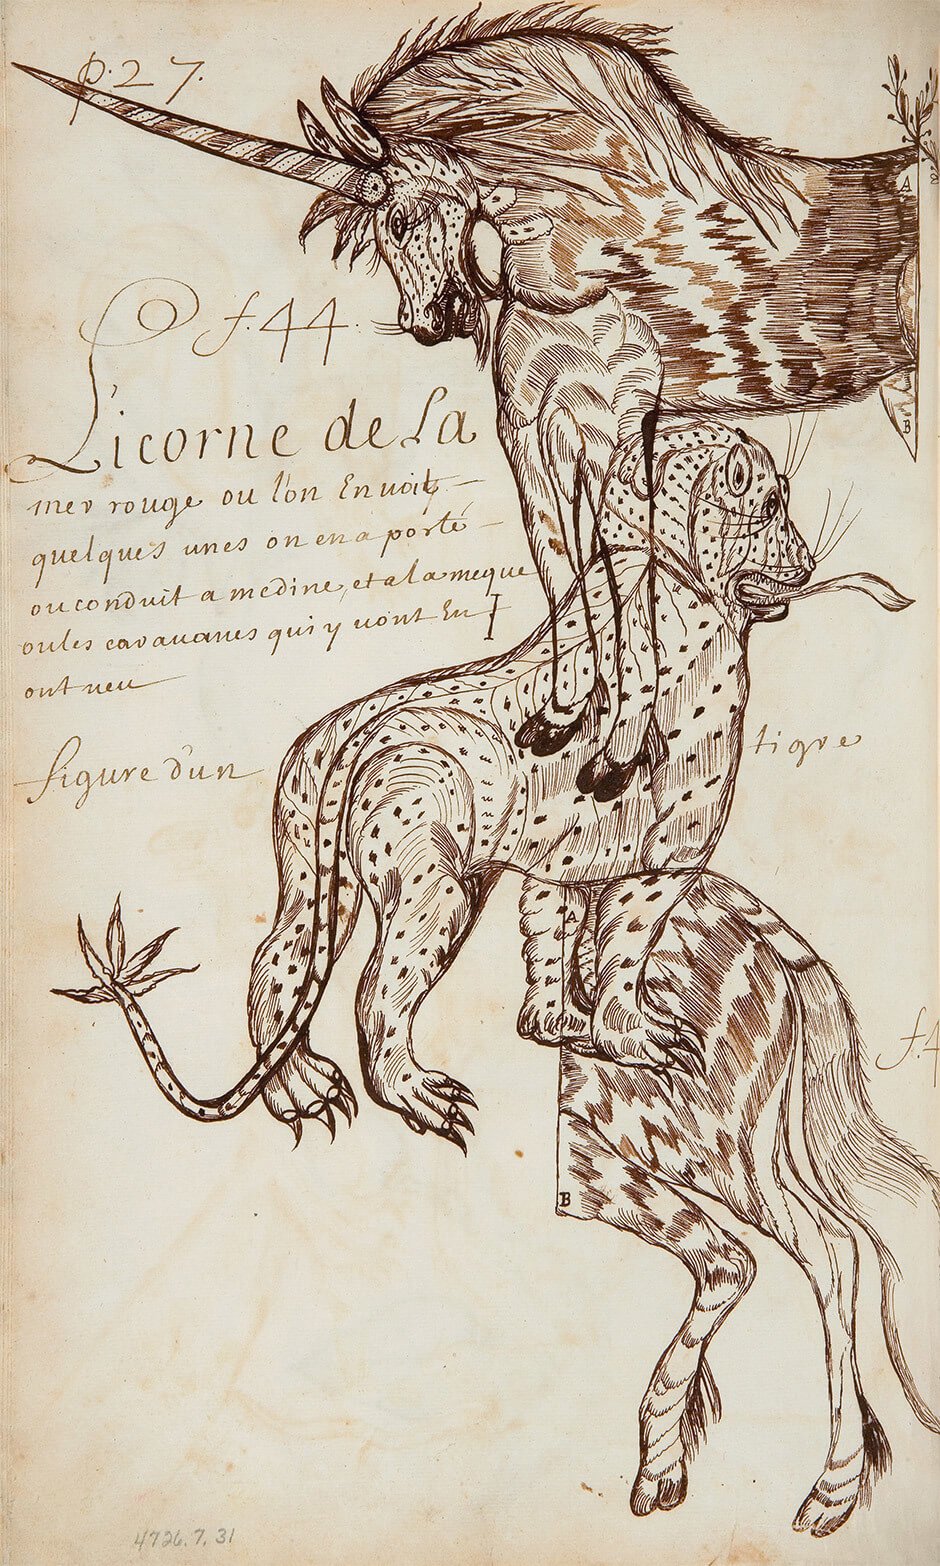 p. 27.
f. 44.
Licorne de La
mer rouge ou l'on En voit
quelques unes on en a porté
ou conduit a medine, et a la meque
ou les caravanes qui y vont En
ont veu
figure d'un tigre
A
B
A
B
f. 4
4726.7.31